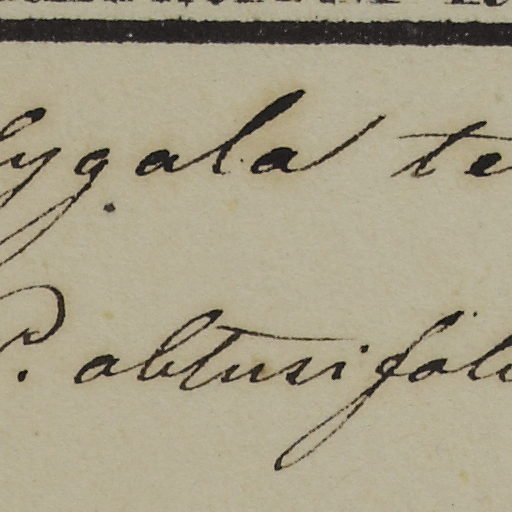 lygala te
P. obtusifoli